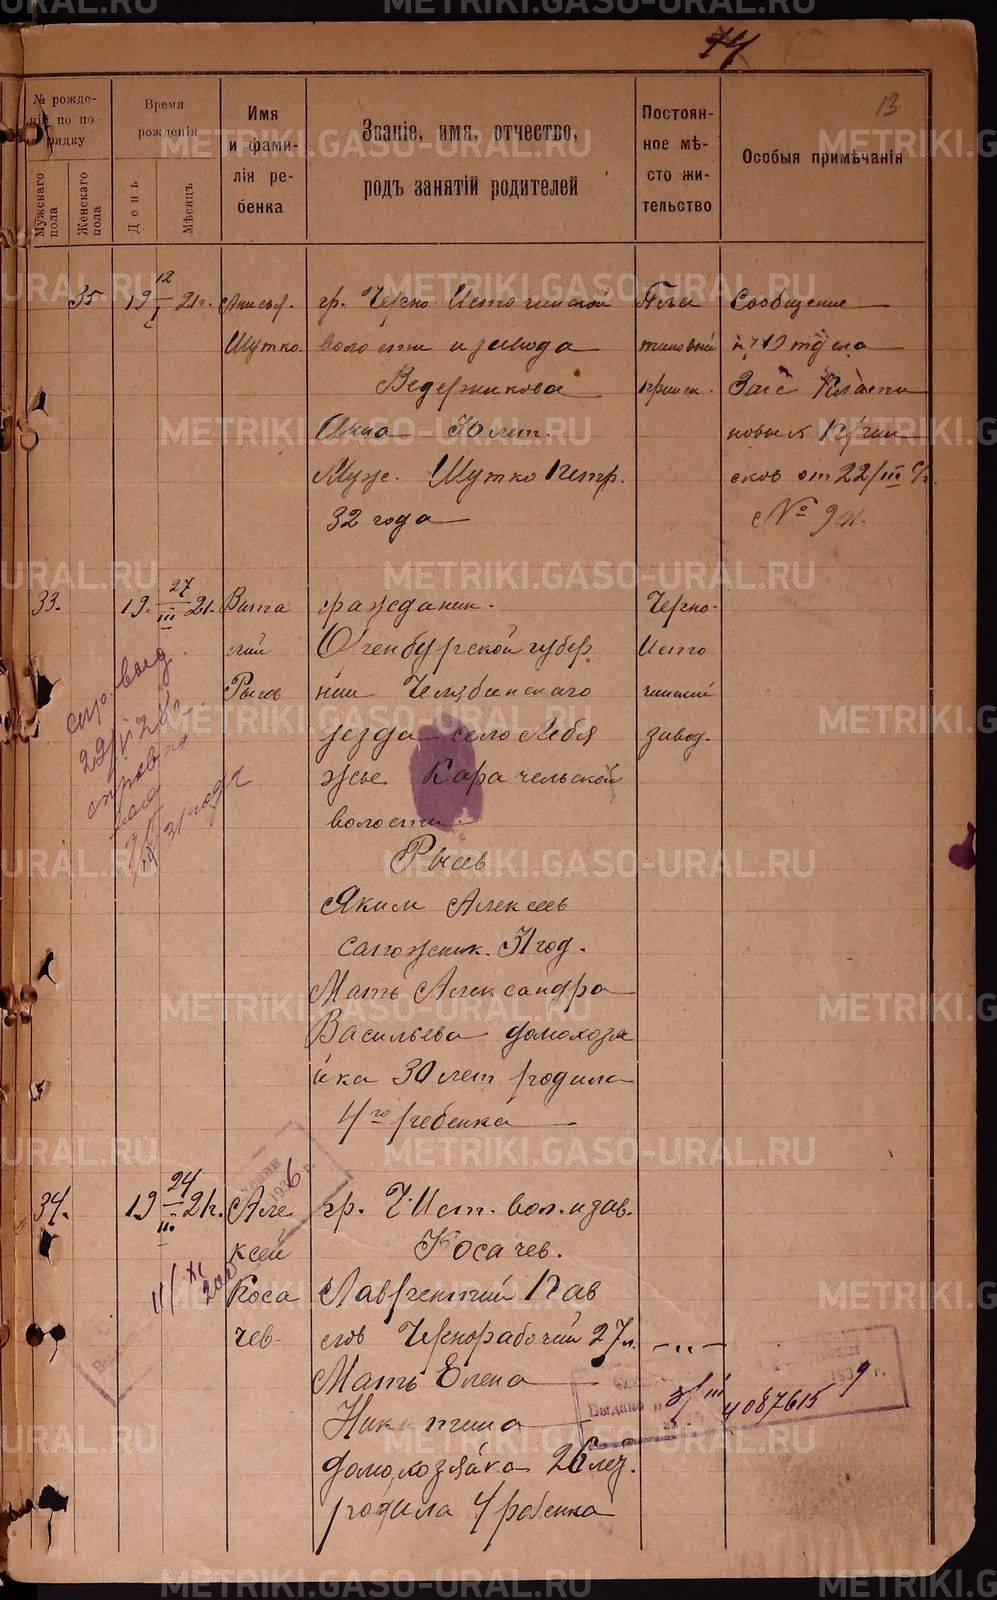 74
13
№ рожде-
ній по по-
рядку
Мужскаго
пола
Женскаго
пола
Время
рожденія
День
Мѣсяцъ
Имя
и фами-
лія ре-
бенка
Званіе, имя, отчество,
родъ занятій родителей
Постоян-
ное мѣ-
сто жи-
тельство
Особыя примѣчанія
35
19 12/I 21г.
Анисья
Шутко
гр. Черно Источинской
волости и завода
Ведерникова
Анна 30 лет.
Муж. Шутко Петр.
32 года
Пла
тиновый
приск.
Сообщение
п/Отдела
Загс Плати
новых При
сков от 22/III с/г.
№ 901.
33.
19. 27/III 21.
Вита
лий
Рысев
гражданин.
Оренбургской губер
нии Челябинскаго
уезда село Лебя
жье Карачельской
волости.
Рысев
Яким Алексеев
сапожник. 31 год.
Мать Александра
Васильева домохозя
йка 30 лет родила
4го ребенка
Черно-
Исто
чинский
завод.
34.
19 24/III 21г.
Але
ксей
Коса
чев
гр. Ч. Ист. вол. и зав.
Косачев.
Лаврентий Пав
лов Чернорабочий 27 л.
Мать Елена
Никитина
домохозяйка 26 лет.
родила 4 ребенка
-„-
Выдано
4087615
METRIKI.GASO-URAL.RU